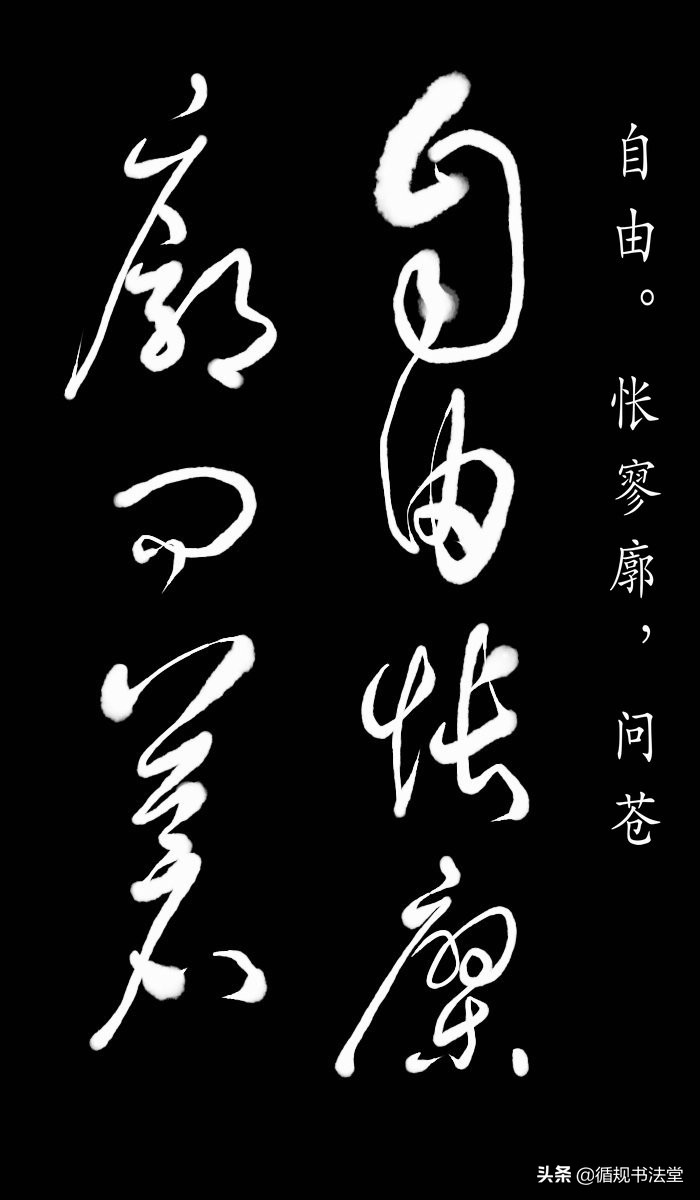 自由。怅寥廓，问苍
自由怅寥
廓问苍
头条 @循规书法堂